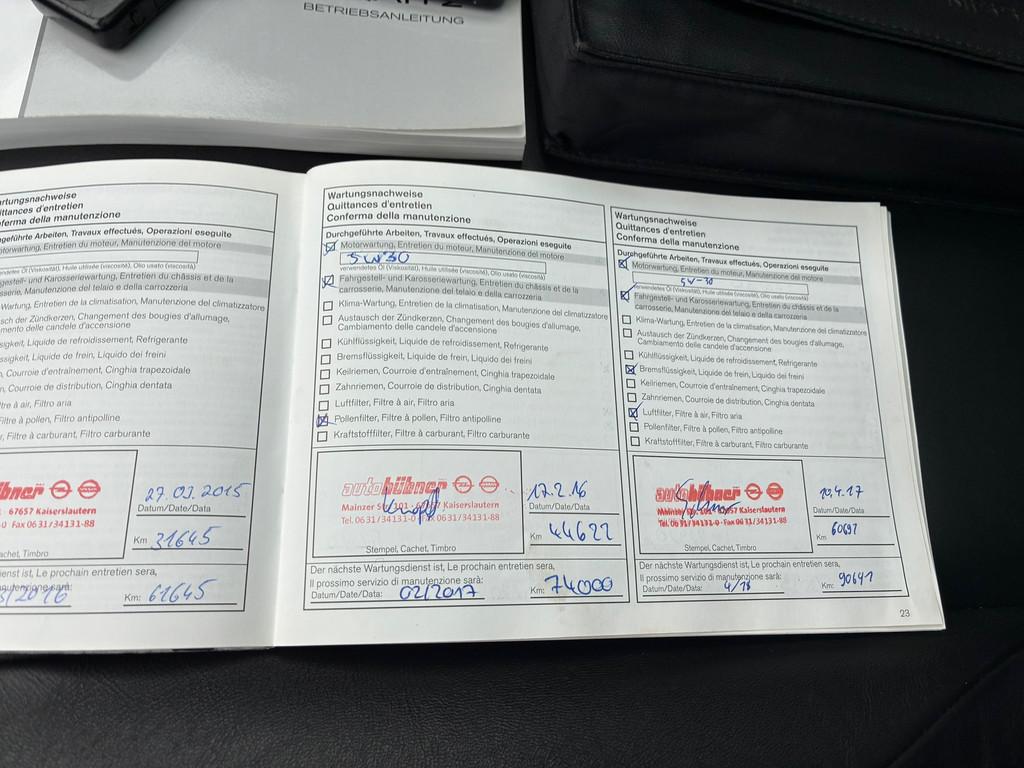 BETRIEBSANLEITUNG
artungsnachweise
ittances d'entretien
nferma della manutenzione
chgeführte Arbeiten, Travaux effectués, Operazioni eseguite
otorwartung, Entretien du moteur, Manutenzione del motore
endetes Öl (Viskosität), Huile utilisée (viscosité), Olio usato (viscosità)
rgestell- und Karosseriewartung, Entretien du châssis et de la
sserie, Manutenzione del telaio e della carrozzeria
Wartung, Entretien de la climatisation, Manutenzione del climatizzatore
usch der Zündkerzen, Changement des bougies d'allumage,
mento delle candele d'accensione
sigkeit, Liquide de refroidissement, Refrigerante
ssigkeit, Liquide de frein, Liquido dei freini
n, Courroie d'entraînement, Cinghia trapezoidale
n, Courroie de distribution, Cinghia dentata
tre à air, Filtro aria
iltre à pollen, Filtro antipolline
r, Filtre à carburant, Filtro carburante
bner
· 67657 Kaiserslautern
-0 · Fax 06 31/34131-88
27.03.2015
Datum/Date/Data
Km 31645
achet, Timbro
dienst ist, Le prochain entretien sera,
manutenzione sarà:
/2016
Km: 61645
Wartungsnachweise
Quittances d'entretien
Conferma della manutenzione
Durchgeführte Arbeiten, Travaux effectués, Operazioni eseguite
Motorwartung, Entretien du moteur, Manutenzione del motore
5W30
verwendetes Öl (Viskosität), Huile utilisée (viscosité), Olio usato (viscosità)
Fahrgestell- und Karosseriewartung, Entretien du châssis et de la
carrosserie, Manutenzione del telaio e della carrozzeria
Klima-Wartung, Entretien de la climatisation, Manutenzione del climatizzatore
Austausch der Zündkerzen, Changement des bougies d'allumage,
Cambiamento delle candele d'accensione
Kühlflüssigkeit, Liquide de refroidissement, Refrigerante
Bremsflüssigkeit, Liquide de frein, Liquido dei freini
Keilriemen, Courroie d'entraînement, Cinghia trapezoidale
Zahnriemen, Courroie de distribution, Cinghia dentata
Luftfilter, Filtre à air, Filtro aria
Pollenfilter, Filtre à pollen, Filtro antipolline
Kraftstofffilter, Filtre à carburant, Filtro carburante
autohübner
Mainzer Str. 101 · 67657 Kaiserslautern
Tel. 06 31/34131-0 · Fax 06 31/34131-88
17.2.16
Datum/Date/Data
Km 44622
Stempel, Cachet, Timbro
Der nächste Wartungsdienst ist, Le prochain entretien sera,
Il prossimo servizio di manutenzione sarà:
Datum/Date/Data: 02/2017 Km: 74000
Wartungsnachweise
Quittances d'entretien
Conferma della manutenzione
Durchgeführte Arbeiten, Travaux effectués, Operazioni eseguite
Motorwartung, Entretien du moteur, Manutenzione del motore
5W-30
verwendetes Öl (Viskosität), Huile utilisée (viscosité), Olio usato (viscosità)
Fahrgestell- und Karosseriewartung, Entretien du châssis et de la
carrosserie, Manutenzione del telaio e della carrozzeria
Klima-Wartung, Entretien de la climatisation, Manutenzione del climatizzatore
Austausch der Zündkerzen, Changement des bougies d'allumage,
Cambiamento delle candele d'accensione
Kühlflüssigkeit, Liquide de refroidissement, Refrigerante
Bremsflüssigkeit, Liquide de frein, Liquido dei freini
Keilriemen, Courroie d'entraînement, Cinghia trapezoidale
Zahnriemen, Courroie de distribution, Cinghia dentata
Luftfilter, Filtre à air, Filtro aria
Pollenfilter, Filtre à pollen, Filtro antipolline
Kraftstofffilter, Filtre à carburant, Filtro carburante
autohübner
Mainzer Str. 101 · 67657 Kaiserslautern
Tel. 06 31/34131-0 · Fax 06 31/34131-88
10.4.17
Datum/Date/Data
Km 60697
Stempel, Cachet, Timbro
Der nächste Wartungsdienst ist, Le prochain entretien sera,
Il prossimo servizio di manutenzione sarà:
Datum/Date/Data: 4/18 Km: 90641
23